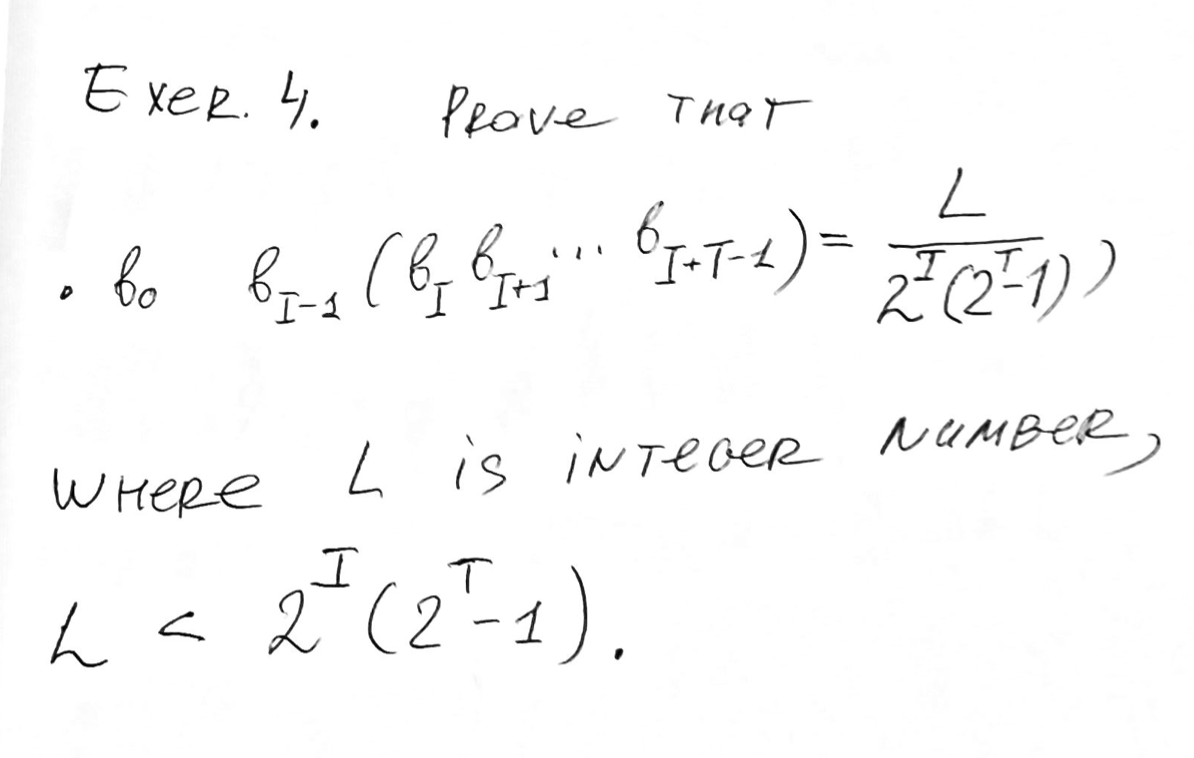 Exer. 4. Prove that
. b₀ b_{I-1} (b_I b_{I+1} ... b_{I+T-1}) = \frac{L}{2^I(2^T-1)})
where L is integer number,
L < 2^I (2^T-1).